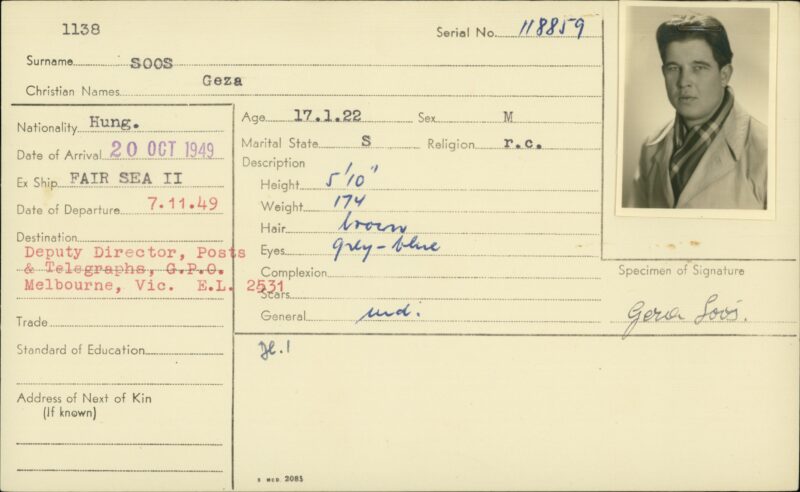 1138
Serial No. 118859
Surname SOOS
Christian Names Geza
Nationality Hung.
Date of Arrival 20 OCT 1949
Ex Ship FAIR SEA II
Date of Departure 7.11.49
Destination
Deputy Director, Posts
& Telegraphs, G.P.O.
Melbourne, Vic. E.L. 2531
Trade
Standard of Education
Address of Next of Kin
(If known)
Age 17.1.22 Sex M
Marital State S Religion r.c.
Description
Height 5'10"
Weight 174
Hair brown
Eyes grey-blue
Complexion
Scars
General
Specimen of Signature
Geza Soós.
S MCD. 2085